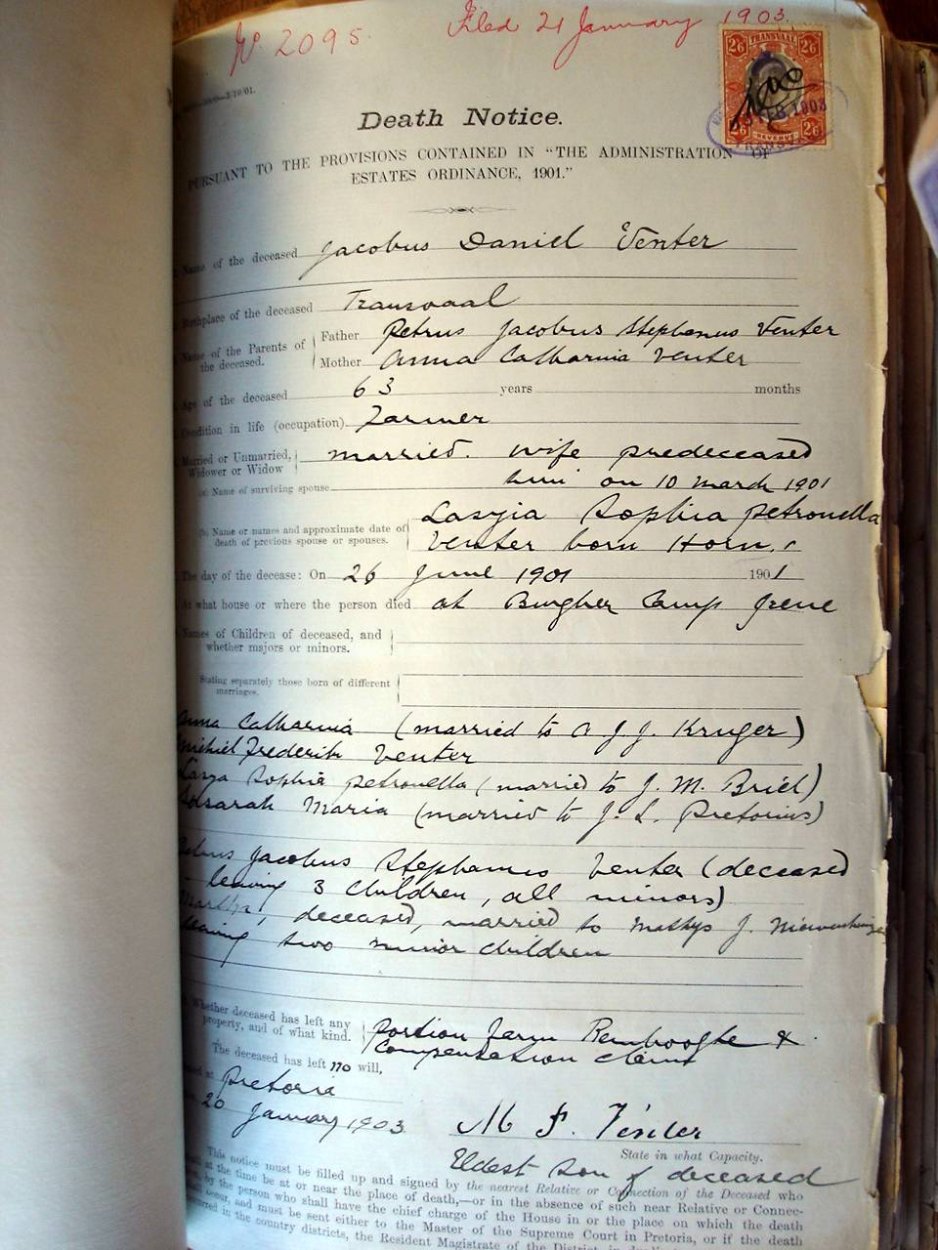 No 2095. Filed 21 January 1903.
TRANSVAAL
2/6 2/6
FEB 1903
2/6 REVENUE 2/6
TRANSVAAL
Death Notice.
PURSUANT TO THE PROVISIONS CONTAINED IN "THE ADMINISTRATION OF
ESTATES ORDINANCE, 1901."
Name of the deceased Jacobus Daniel Venter
Birthplace of the deceased Transvaal
Name of the Parents of the deceased. Father Petrus Jacobus Stephanus Venter
Mother Anna Catharina Venter
Age of the deceased 63 years months
Condition in life (occupation) Farmer
Married or Unmarried, Widower or Widow married. wife predeceased
(a) Name of surviving spouse him on 10 March 1901
(b) Name or names and approximate date of death of previous spouse or spouses. Lasyia Sophia Petronella
Venter born Horn.
The day of the decease: On 26 June 1901 1901
At what house or where the person died at Burgher Camp Irene
Names of Children of deceased, and
whether majors or minors.
Stating separately those born of different
marriages.
Anna Catharina (married to A J J. Kruger)
Frederik Venter
Sophia Petronella (married to J. M. Briel)
Maria (married to J. L. Pretorius)
Jacobus Stephanus Venter (deceased
leaving 3 children, all minors)
deceased, married to Mathys J.
leaving two minor children
Whether deceased has left any
property, and of what kind. Portion farm &
Compensation claim
The deceased has left no will,
Pretoria
20 January 1903
M F. Venter
State in what Capacity.
Eldest son of deceased
This notice must be filled up and signed by the nearest Relative or Connection of the Deceased who
at the time be at or near the place of death,—or in the absence of such near Relative or Connec-
by the person who shall have the chief charge of the House in or the place on which the death
occur, and must be sent either to the Master of the Supreme Court in Pretoria, or if the death
in the country districts, the Resident Magistrate of the District